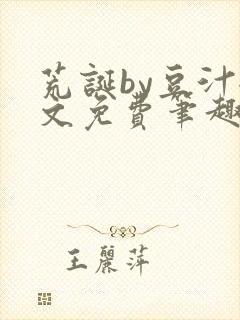 荒誕by豆汁
文免費筆趣
王麗萍